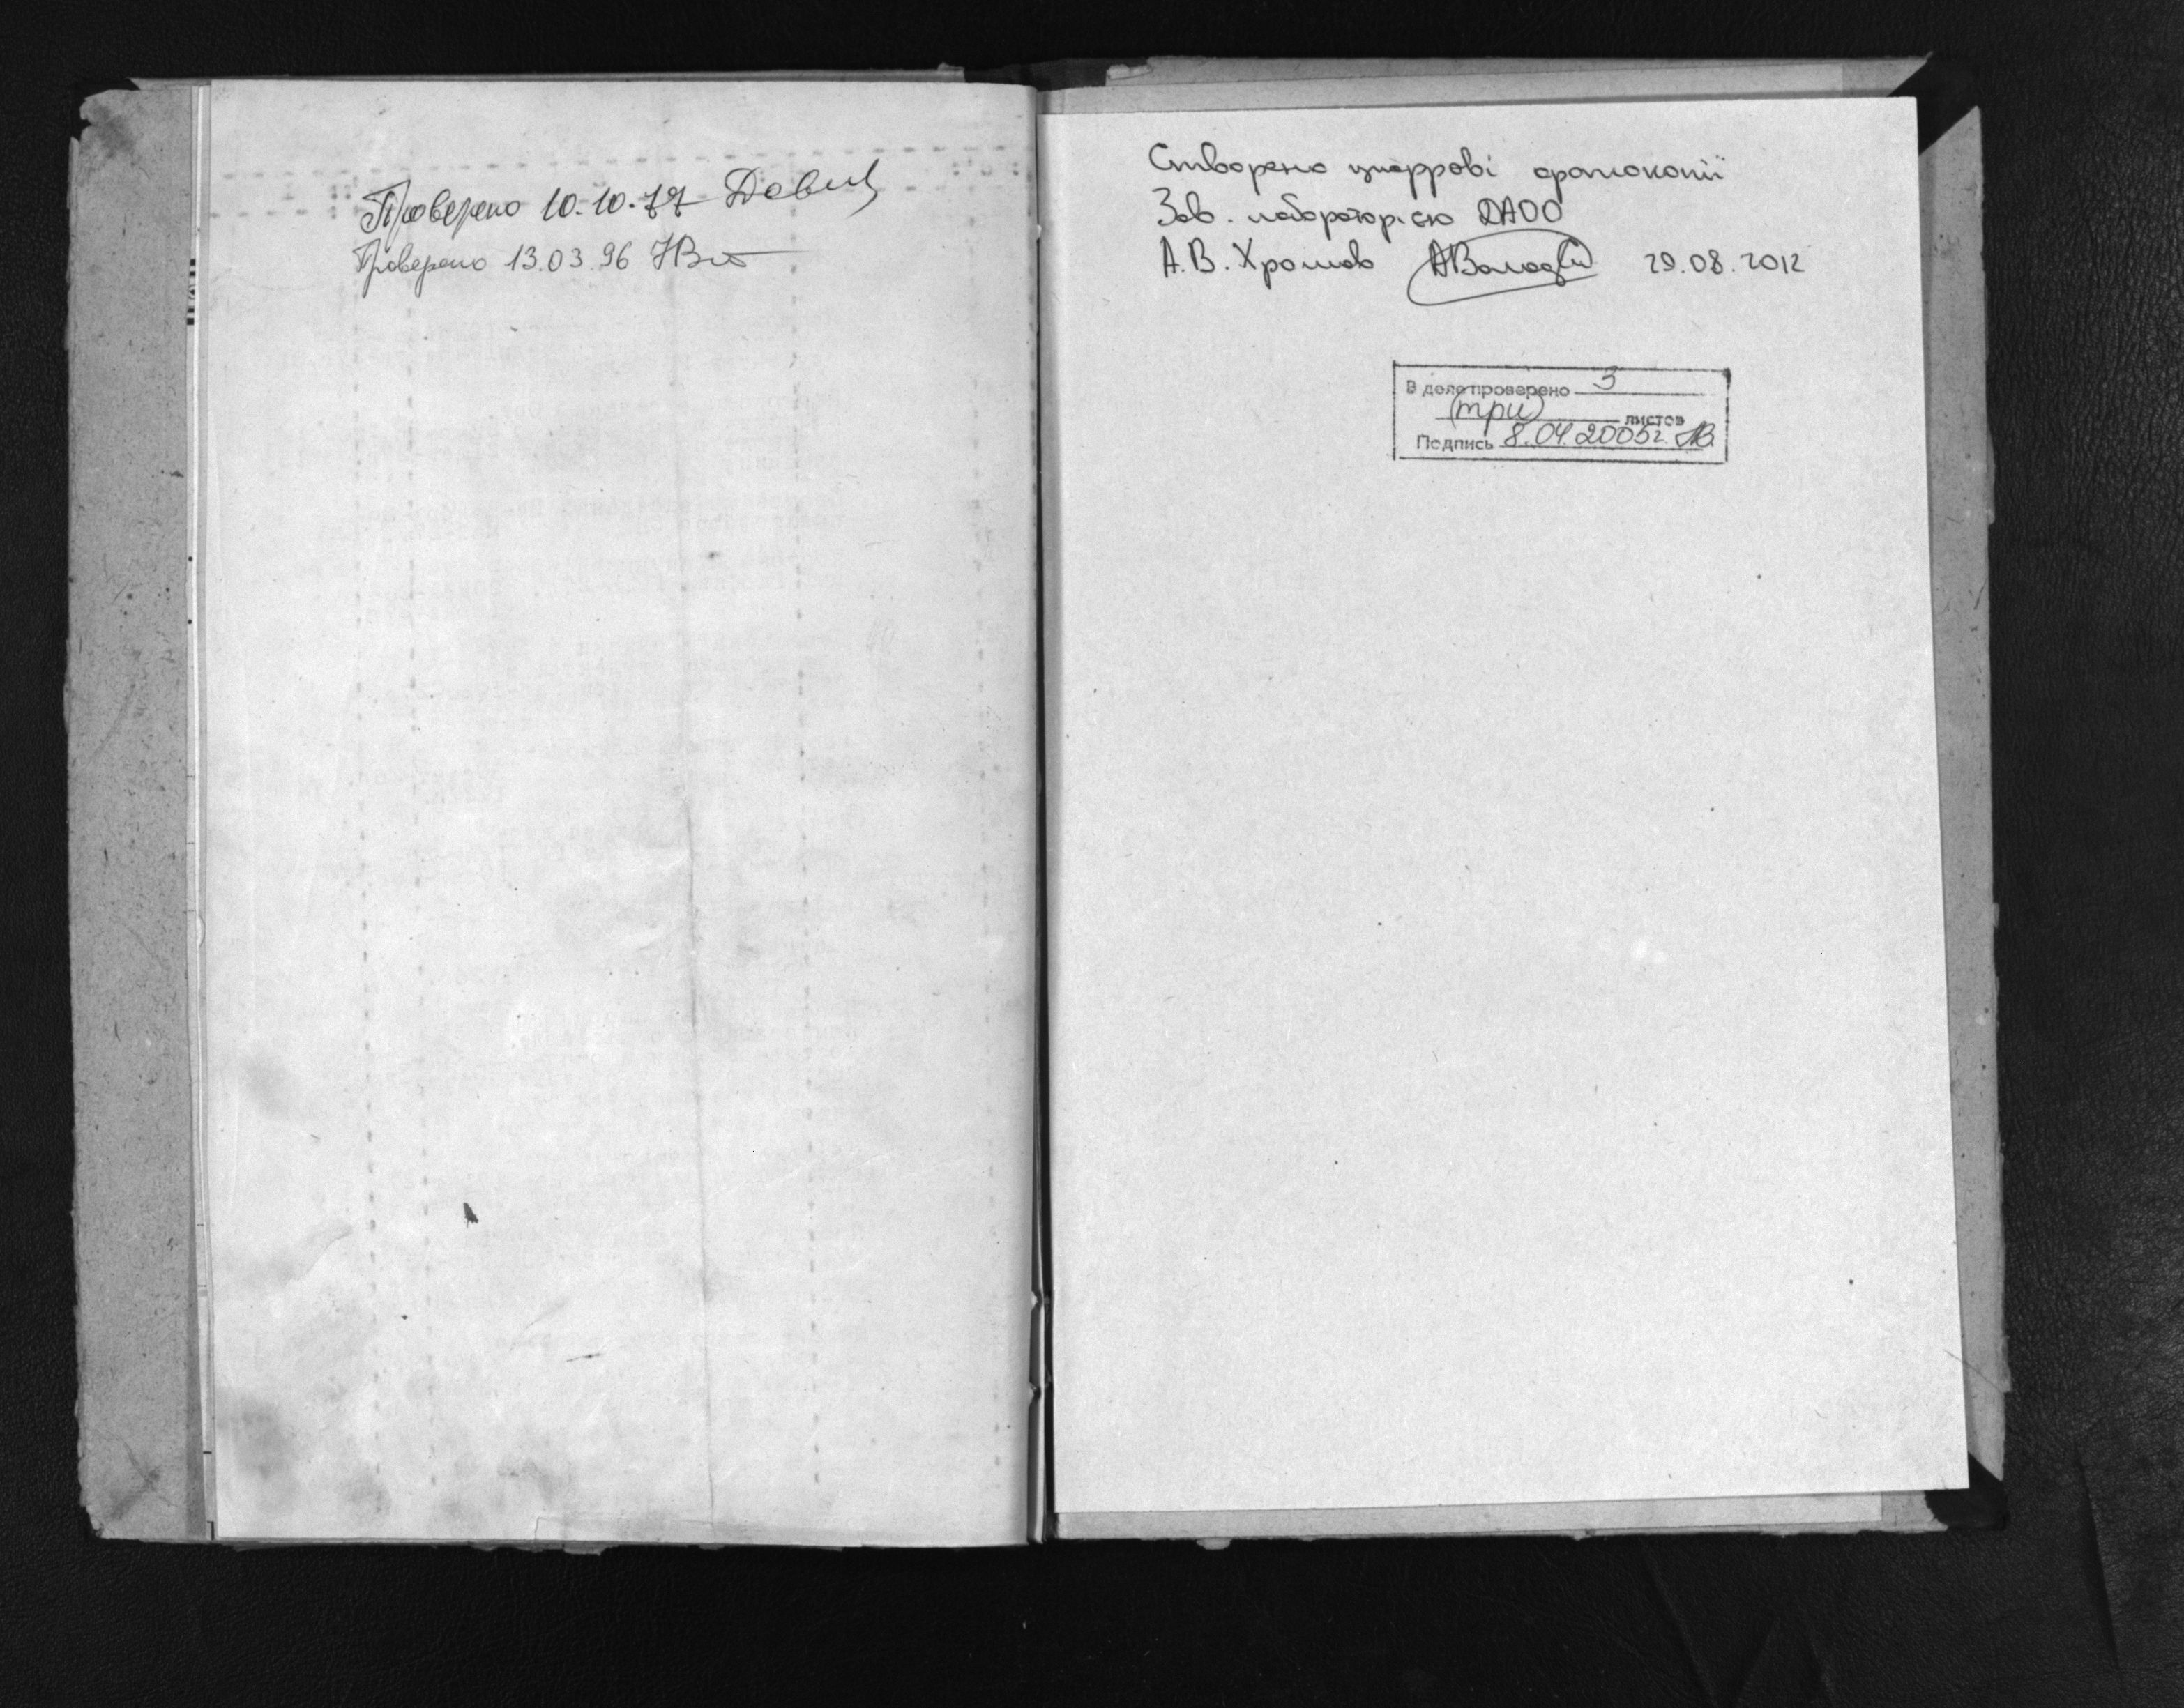 Проверено 10.10.77
Проверено 13.03.96
Створено цифрові фотокопії
Зав. лабораторією ДАОО
А.В. Хромов 29.08.2012
В деле проверено 3
(три) листов
Подпись 8.04.2005г.